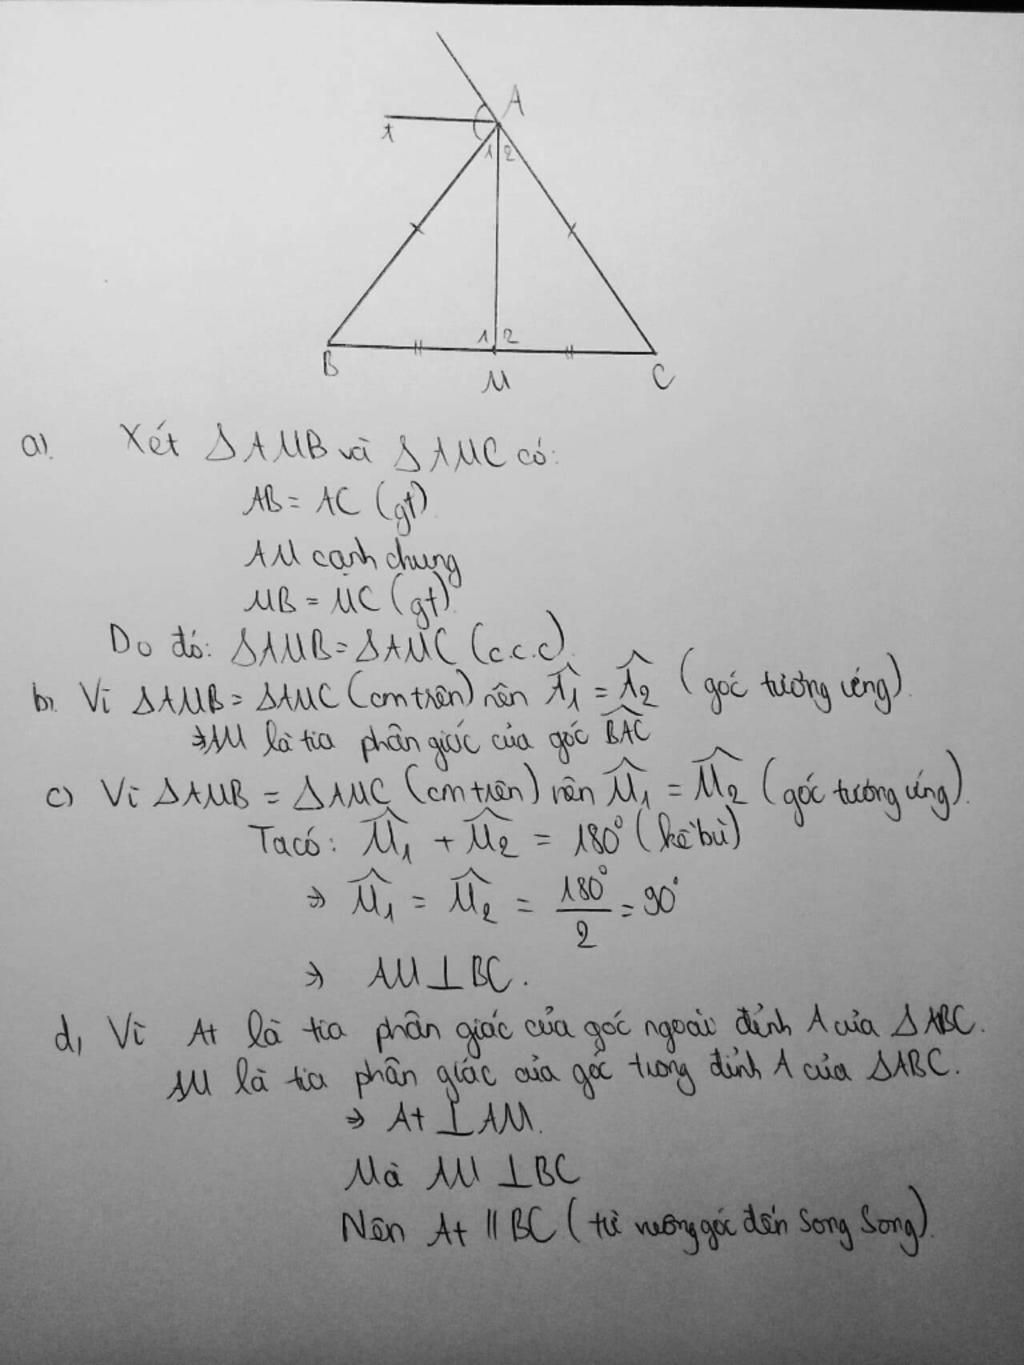 A
t
1 2
1 2
B
M
C
a). Xét ΔAMB và ΔAMC có:
AB = AC (gt)
AM cạnh chung
MB = MC (gt).
Do đó: ΔAMB = ΔAMC (c.c.c).
b, Vì ΔAMB = ΔAMC (cm trên) nên Â₁ = Â₂ (góc tương ứng).
⇒ AM là tia phân giác của góc \widehat{BAC}
c) Vì ΔAMB = ΔAMC (cm trên) nên \widehat{M}₁ = \widehat{M}₂ (góc tương ứng).
Ta có: \widehat{M}₁ + \widehat{M}₂ = 180° (kề bù)
⇒ \widehat{M}₁ = \widehat{M}₂ = 180°/2 = 90°
⇒ AM ⊥ BC.
d, Vì At là tia phân giác của góc ngoài đỉnh A của ΔABC.
AM là tia phân giác của góc trong đỉnh A của ΔABC.
⇒ At ⊥ AM.
Mà AM ⊥ BC
Nên At ∥ BC (từ vuông góc đến song song).